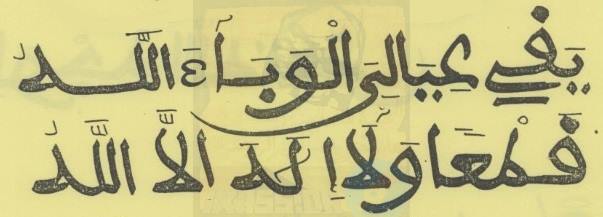 يَقِي عِيَالِىَ الْوَبَآءَ اللَّهُ
قَمْعَا وَلَآ إِلَهَ الَّا اللَّهُ